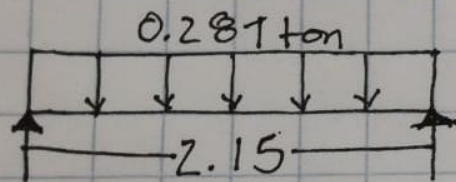 0.287 ton
2.15